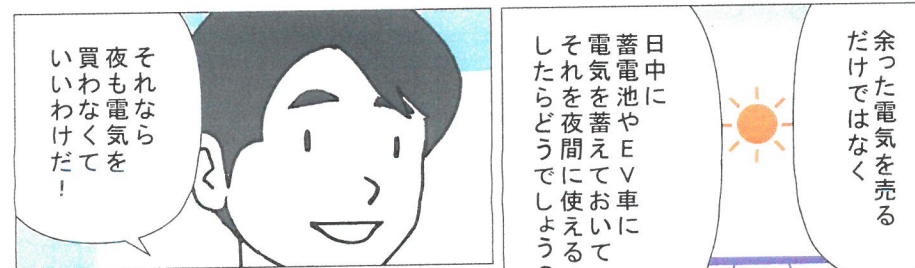 余った電気を売る
だけではなく
日中に
蓄電池やEV車に
電気を蓄えておいて
それを夜間に使える
したらどうでしょう
それなら
夜も電気を
買わなくて
いいわけだ！